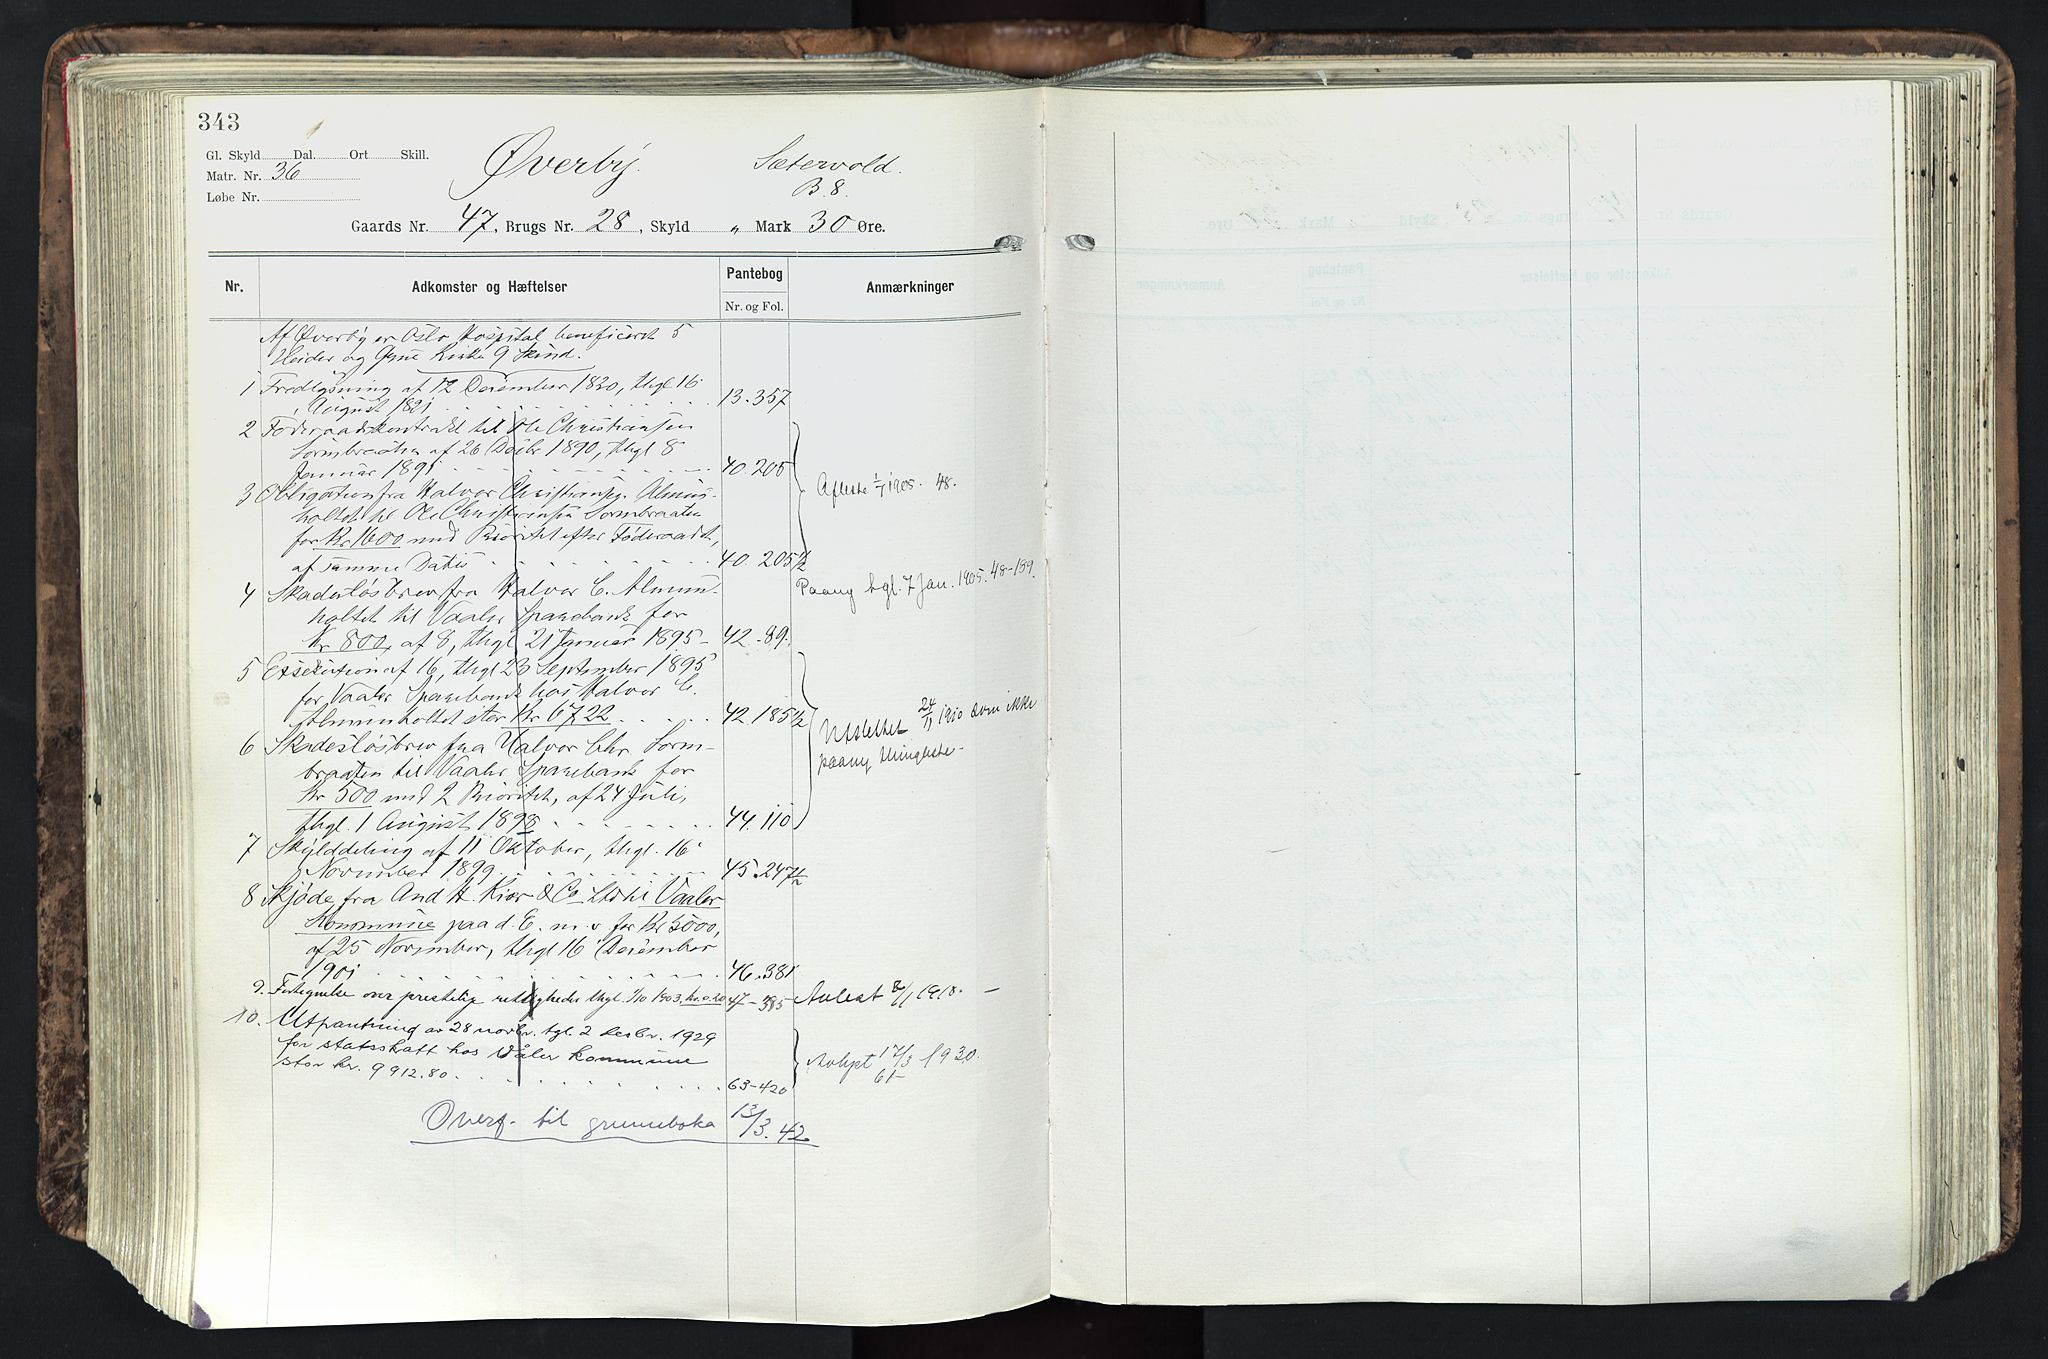 343
Gl. Skyld Dal. Ort Skill.
Matr. Nr. 36
Løbe Nr.
Øverby. Sætervold.
B. 8.
Gaards Nr. 47, Brugs Nr. 28, Skyld „ Mark 30 Øre.
Nr. Adkomster og Hæftelser Pantebog Anmærkninger
Nr. og Fol.
Af Øverby er Oslo Hospital beneficeret 5
Huder og Kirke 9 Skind.
1 Fredlysning af 12 December 1820, thgl 16
August 1821 13.357
2 Føderaadskontrakt til Ole Christiansen
Sormbraaten af 26 Decbr 1890, thgl 8
Januar 1891 40.205
3 Obligation fra Halvor Christiansen Almun-
holtet til Ole Christiansen Sormbraaten
for Kr 1600 med Prioritet efter Føderaadet,
af samme Datis 40.205 1/2
Afleste 1905. 48.
4 Skadesløsbrev fra Halvor C. Almun-
holtet til Vaaler Sparebank for
Kr 800, af 8, thgl 21 Januar 1895 42.89.
Paany tgl. 7 Jan. 1905. 48-139.
5 Exsekution af 16, thgl 23 September 1895
for Vaaler Sparebank hos Halvor C.
Almunholtet stor Kr 6722 42.185 1/2
6 Skadesløsbrev fra Halvor Chr. Sorm-
braaten til Vaaler Sparebank for
Kr 500 med 2 Prioritet, af 24 Juli,
thgl. 1 August 1898 44.110
Utslettet 24/11 1910 som ikke
paany thinglæste-
7 Skylddeling af 11 Oktober, thgl. 16
November 1899 45.247 1/2
8 Skjøde fra And H. Kiær & Co. Ltd til Vaaler
Kommune paa d. E. m. v for Kr 5000,
af 25 November, thgl 16 December
1901 46.381
9. Fortegnelse over prestelige rettigheder thgl. 1/10 1903, 47-385 Avlest 8/11 1918. -
10. Utpantning av 28 novbr. tgl. 2 desbr. 1929
for statsskatt hos Våler kommune
stor kr. 9912.80 63-420
Avlyst 17/3 1930.
61-
Overf. til grunnboka 13/3. 42